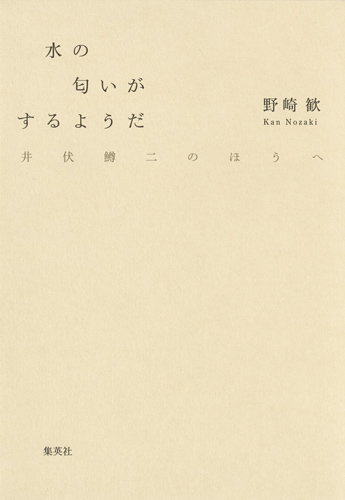 水の
匂いが
するようだ
野崎歓
Kan Nozaki
井伏鱒二のほうへ
集英社